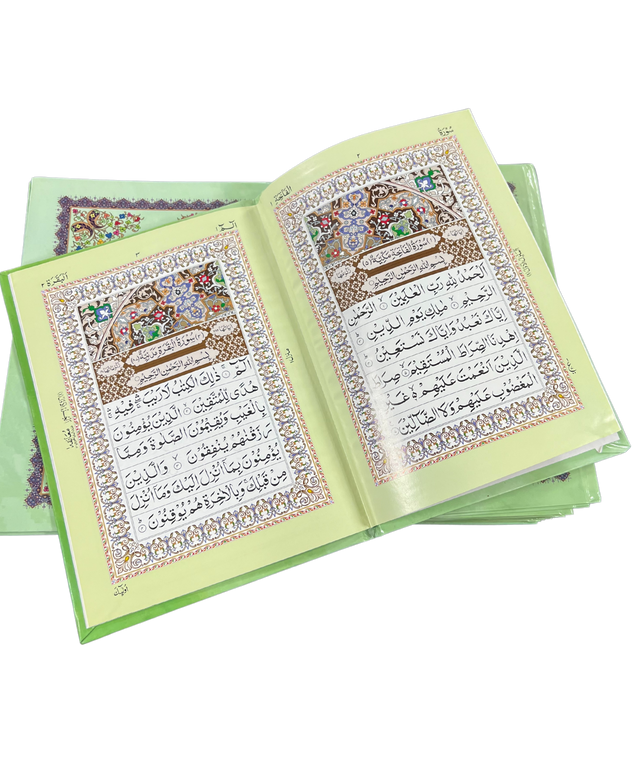 سُوْرَةُ
الفاتحة ١
٢
سُوْرَةُ الْفَاتِحَةِ مَكِّيَّةٌ
بِسْمِ اللّٰهِ الرَّحْمٰنِ الرَّحِيْمِ
اَلْحَمْدُ لِلّٰهِ رَبِّ الْعٰلَمِيْنَ ۙ الرَّحْمٰنِ
الرَّحِيْمِ ۙ مٰلِكِ يَوْمِ الدِّيْنِ
اِيَّاكَ نَعْبُدُ وَاِيَّاكَ نَسْتَعِيْنُ
اِهْدِنَا الصِّرَاطَ الْمُسْتَقِيْمَ ۙ صِرَاطَ
الَّذِيْنَ اَنْعَمْتَ عَلَيْهِمْ
الْمَغْضُوْبِ عَلَيْهِمْ وَلَا الضَّآلِّيْنَ
الٓمّٓ ١
٣
البقرة ٢
سُوْرَةُ الْبَقَرَةِ مَدَنِيَّةٌ
بِسْمِ اللّٰهِ الرَّحْمٰنِ الرَّحِيْمِ
الٓمّٓ ۚ ذٰلِكَ الْكِتٰبُ لَا رَيْبَ ۛ فِيْهِ ۛ
هُدًى لِّلْمُتَّقِيْنَ ۙ الَّذِيْنَ يُؤْمِنُوْنَ
بِالْغَيْبِ وَيُقِيْمُوْنَ الصَّلٰوةَ وَمِمَّا
رَزَقْنٰهُمْ يُنْفِقُوْنَ ۙ وَالَّذِيْنَ
يُؤْمِنُوْنَ بِمَآ اُنْزِلَ اِلَيْكَ وَمَآ اُنْزِلَ
مِنْ قَبْلِكَ وَبِالْاٰخِرَةِ هُمْ يُوْقِنُوْنَ
اُولٰٓئِكَ